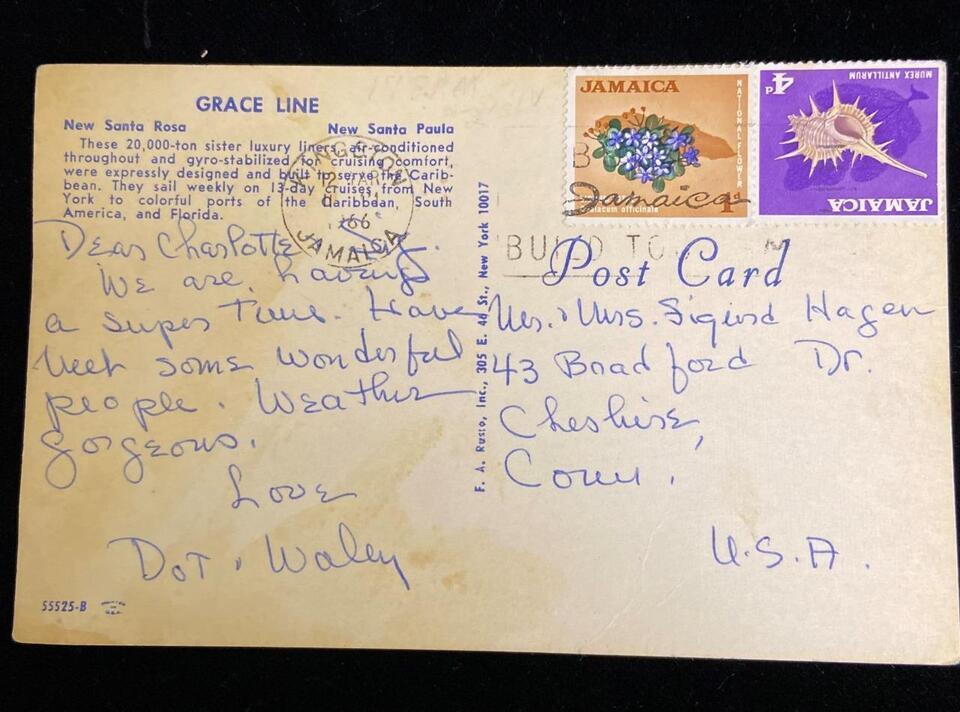 GRACE LINE
New Santa Rosa New Santa Paula
These 20,000-ton sister luxury liners, air-conditioned
throughout and gyro-stabilized for cruising comfort,
were expressly designed and built to serve the Carib-
bean. They sail weekly on 13-day cruises from New
York to colorful ports of the Caribbean, South
America, and Florida.
Dear Charlotte
We are having
a super time. Have
Meet some wonderful
people. Weather
gorgeous.
Love
Dot & Waley
55525-B
F. A. Russo, Inc., 305 E. 46 St., New York 10017
KINGSTON
MAR
66
JAMAICA
JAMAICA
NATIONAL FLOWER
Jamaica
1d
officinale
4P
MUREX ANTILLARUM
JAMAICA
BUILD TO
Post Card
Mr. & Mrs. Sigurd Hagen
43 Bradford Dr.
Cheshire,
Conn.
U.S.A.